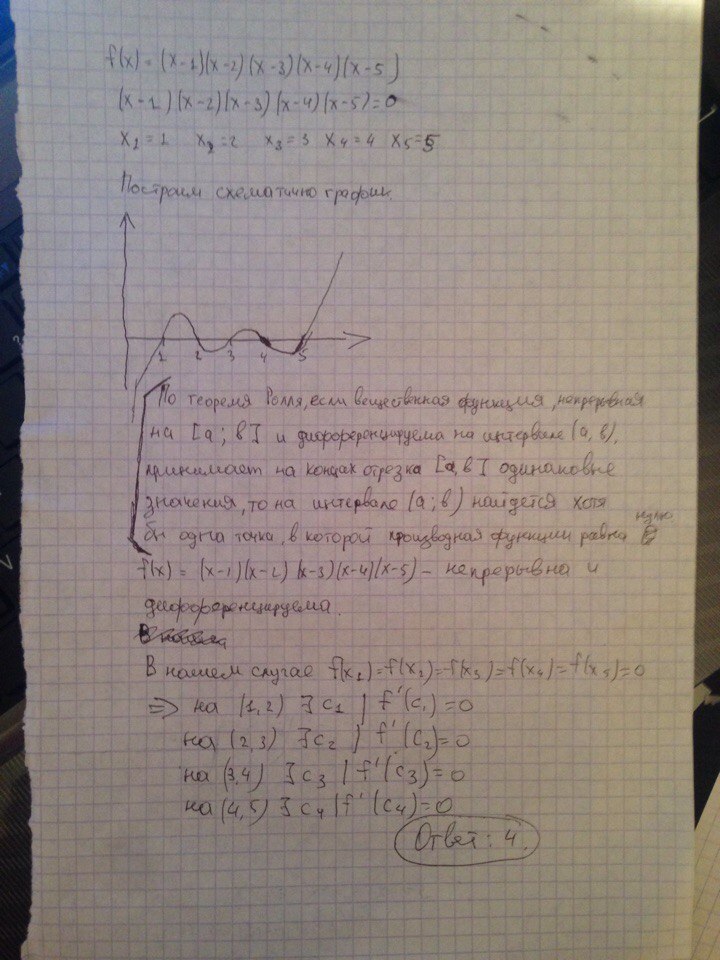 f(x) = (x-1)(x-2)(x-3)(x-4)(x-5)
(x-1)(x-2)(x-3)(x-4)(x-5)=0
x₁=1 x₂=2 x₃=3 x₄=4 x₅=5
Построим схематично график
1 2 3 4 5
По теореме Ролля, если вещественная функция, непрерывная
на [a; в] и дифференцируема на интервале (a, в),
принимает на концах отрезка [a, в] одинаковые
значения, то на интервале (a; в) найдется хотя
бы одна точка, в которой производная функции равна нулю
f(x) = (x-1)(x-2)(x-3)(x-4)(x-5) - непрерывна и
дифференцируема.
В нашем случае f(x₁)=f(x₂)=f(x₃)=f(x₄)=f(x₅)=0
⇒ на (1,2) ∃ c₁ | f'(c₁)=0
на (2,3) ∃ c₂ | f'(c₂)=0
на (3,4) ∃ c₃ | f'(c₃)=0
на (4,5) ∃ c₄ | f'(c₄)=0
Ответ: 4.